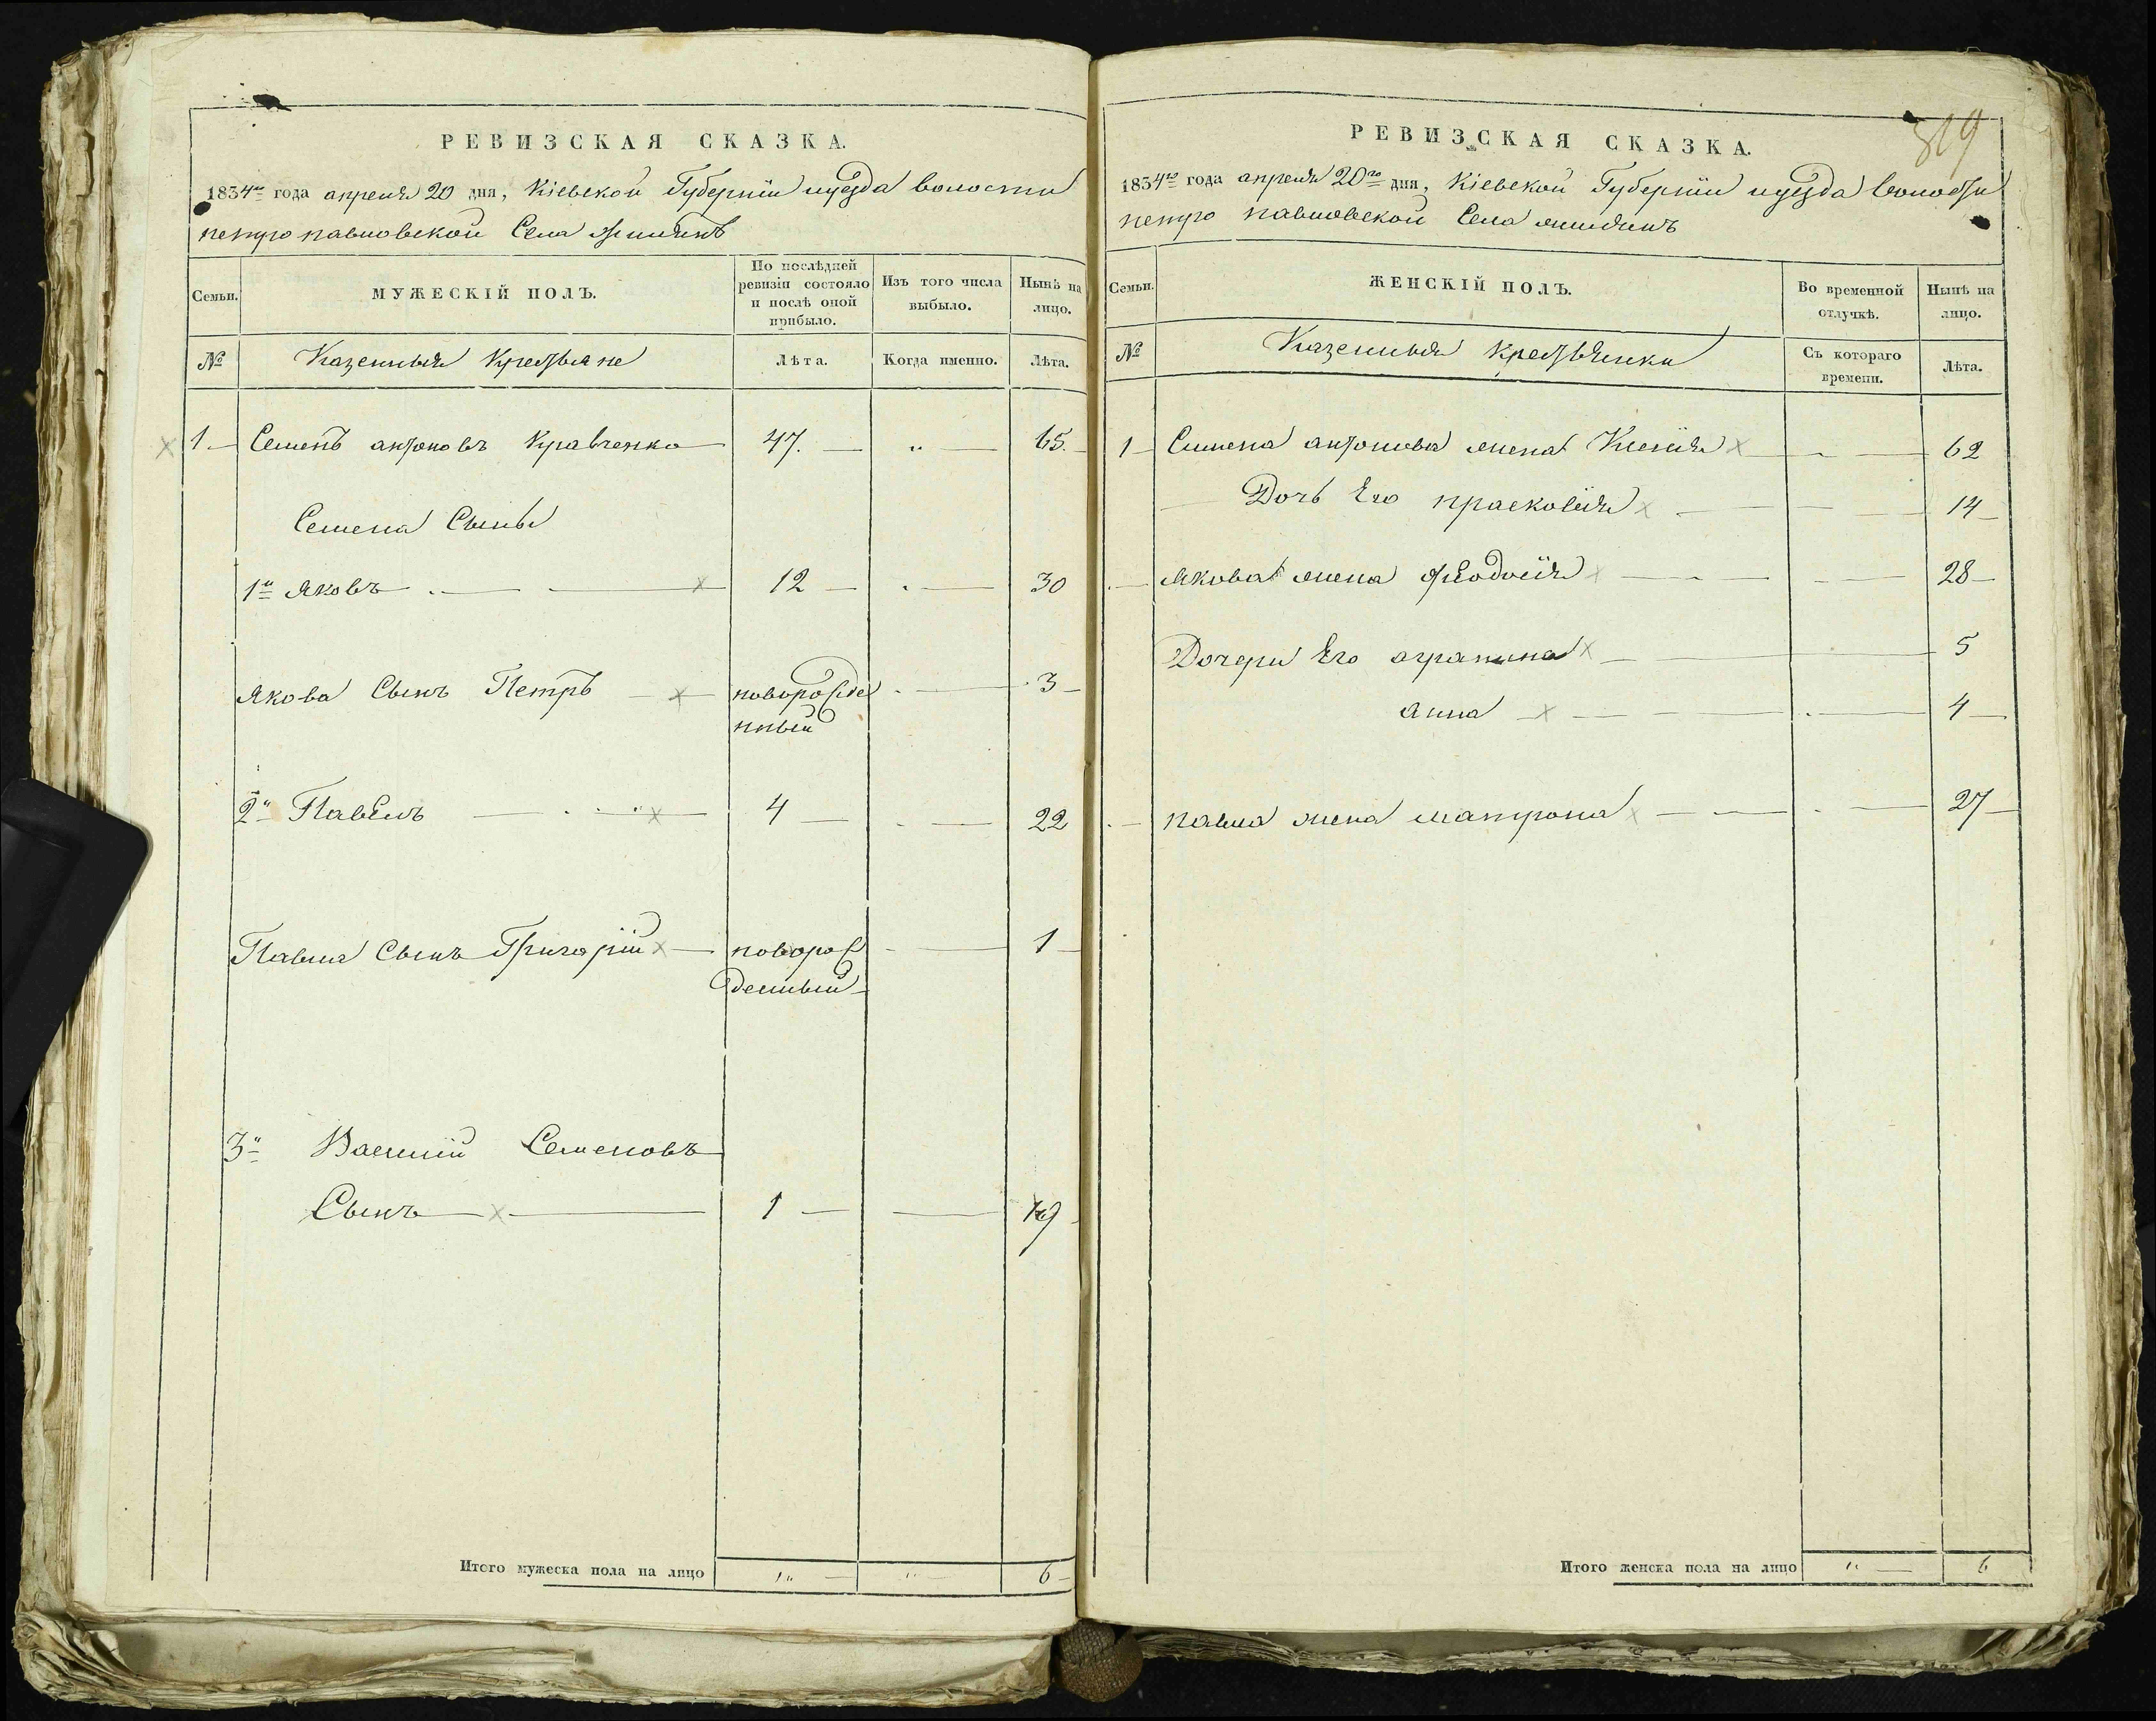 РЕВИЗСКАЯ СКАЗКА.
1834го года апреля 20 дня, Кіевской Губерніи и уезда волости
петро павловской Села
Семьи.
МУЖЕСКІЙ ПОЛЪ.
По послѣдней ревизіи состояло и послѣ оной прибыло.
Изъ того числа выбыло.
Нынѣ на лицо.
№
Казенныя Крестьяне
Лѣта.
Когда именно.
Лѣта.
1 Семенъ антоновъ Кравченко 47. 65.
Семена Сыны
1й Яковъ 12 30
Якова Сынъ Петръ новорожде 3
нный
2й Павелъ 4 22
Павла Сынъ Григорій новорож 1
денный
3й Василій Семеновъ
Сынъ 1 19
Итого мужеска пола на лицо 6
319
РЕВИЗСКАЯ СКАЗКА.
1834го года апреля 20го дня, Кіевской Губерніи и уезда волости
петро павловской Села
Семьи.
ЖЕНСКІЙ ПОЛЪ.
Во временной отлучкѣ.
Нынѣ на лицо.
№
Казенныя крестьянки
Съ котораго времени.
Лѣта.
1 Симена антонова жена Ксенія 62
Дочь Его прасковія 14
Якова жена Феодосія 28
Дочери Его аграпина 5
анна 4
павла жена матрона 27
Итого женска пола на лицо 6